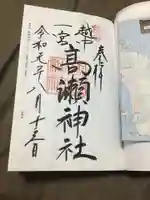 奉拝
越中
一宮
高瀬神社
令和元年八月十三日